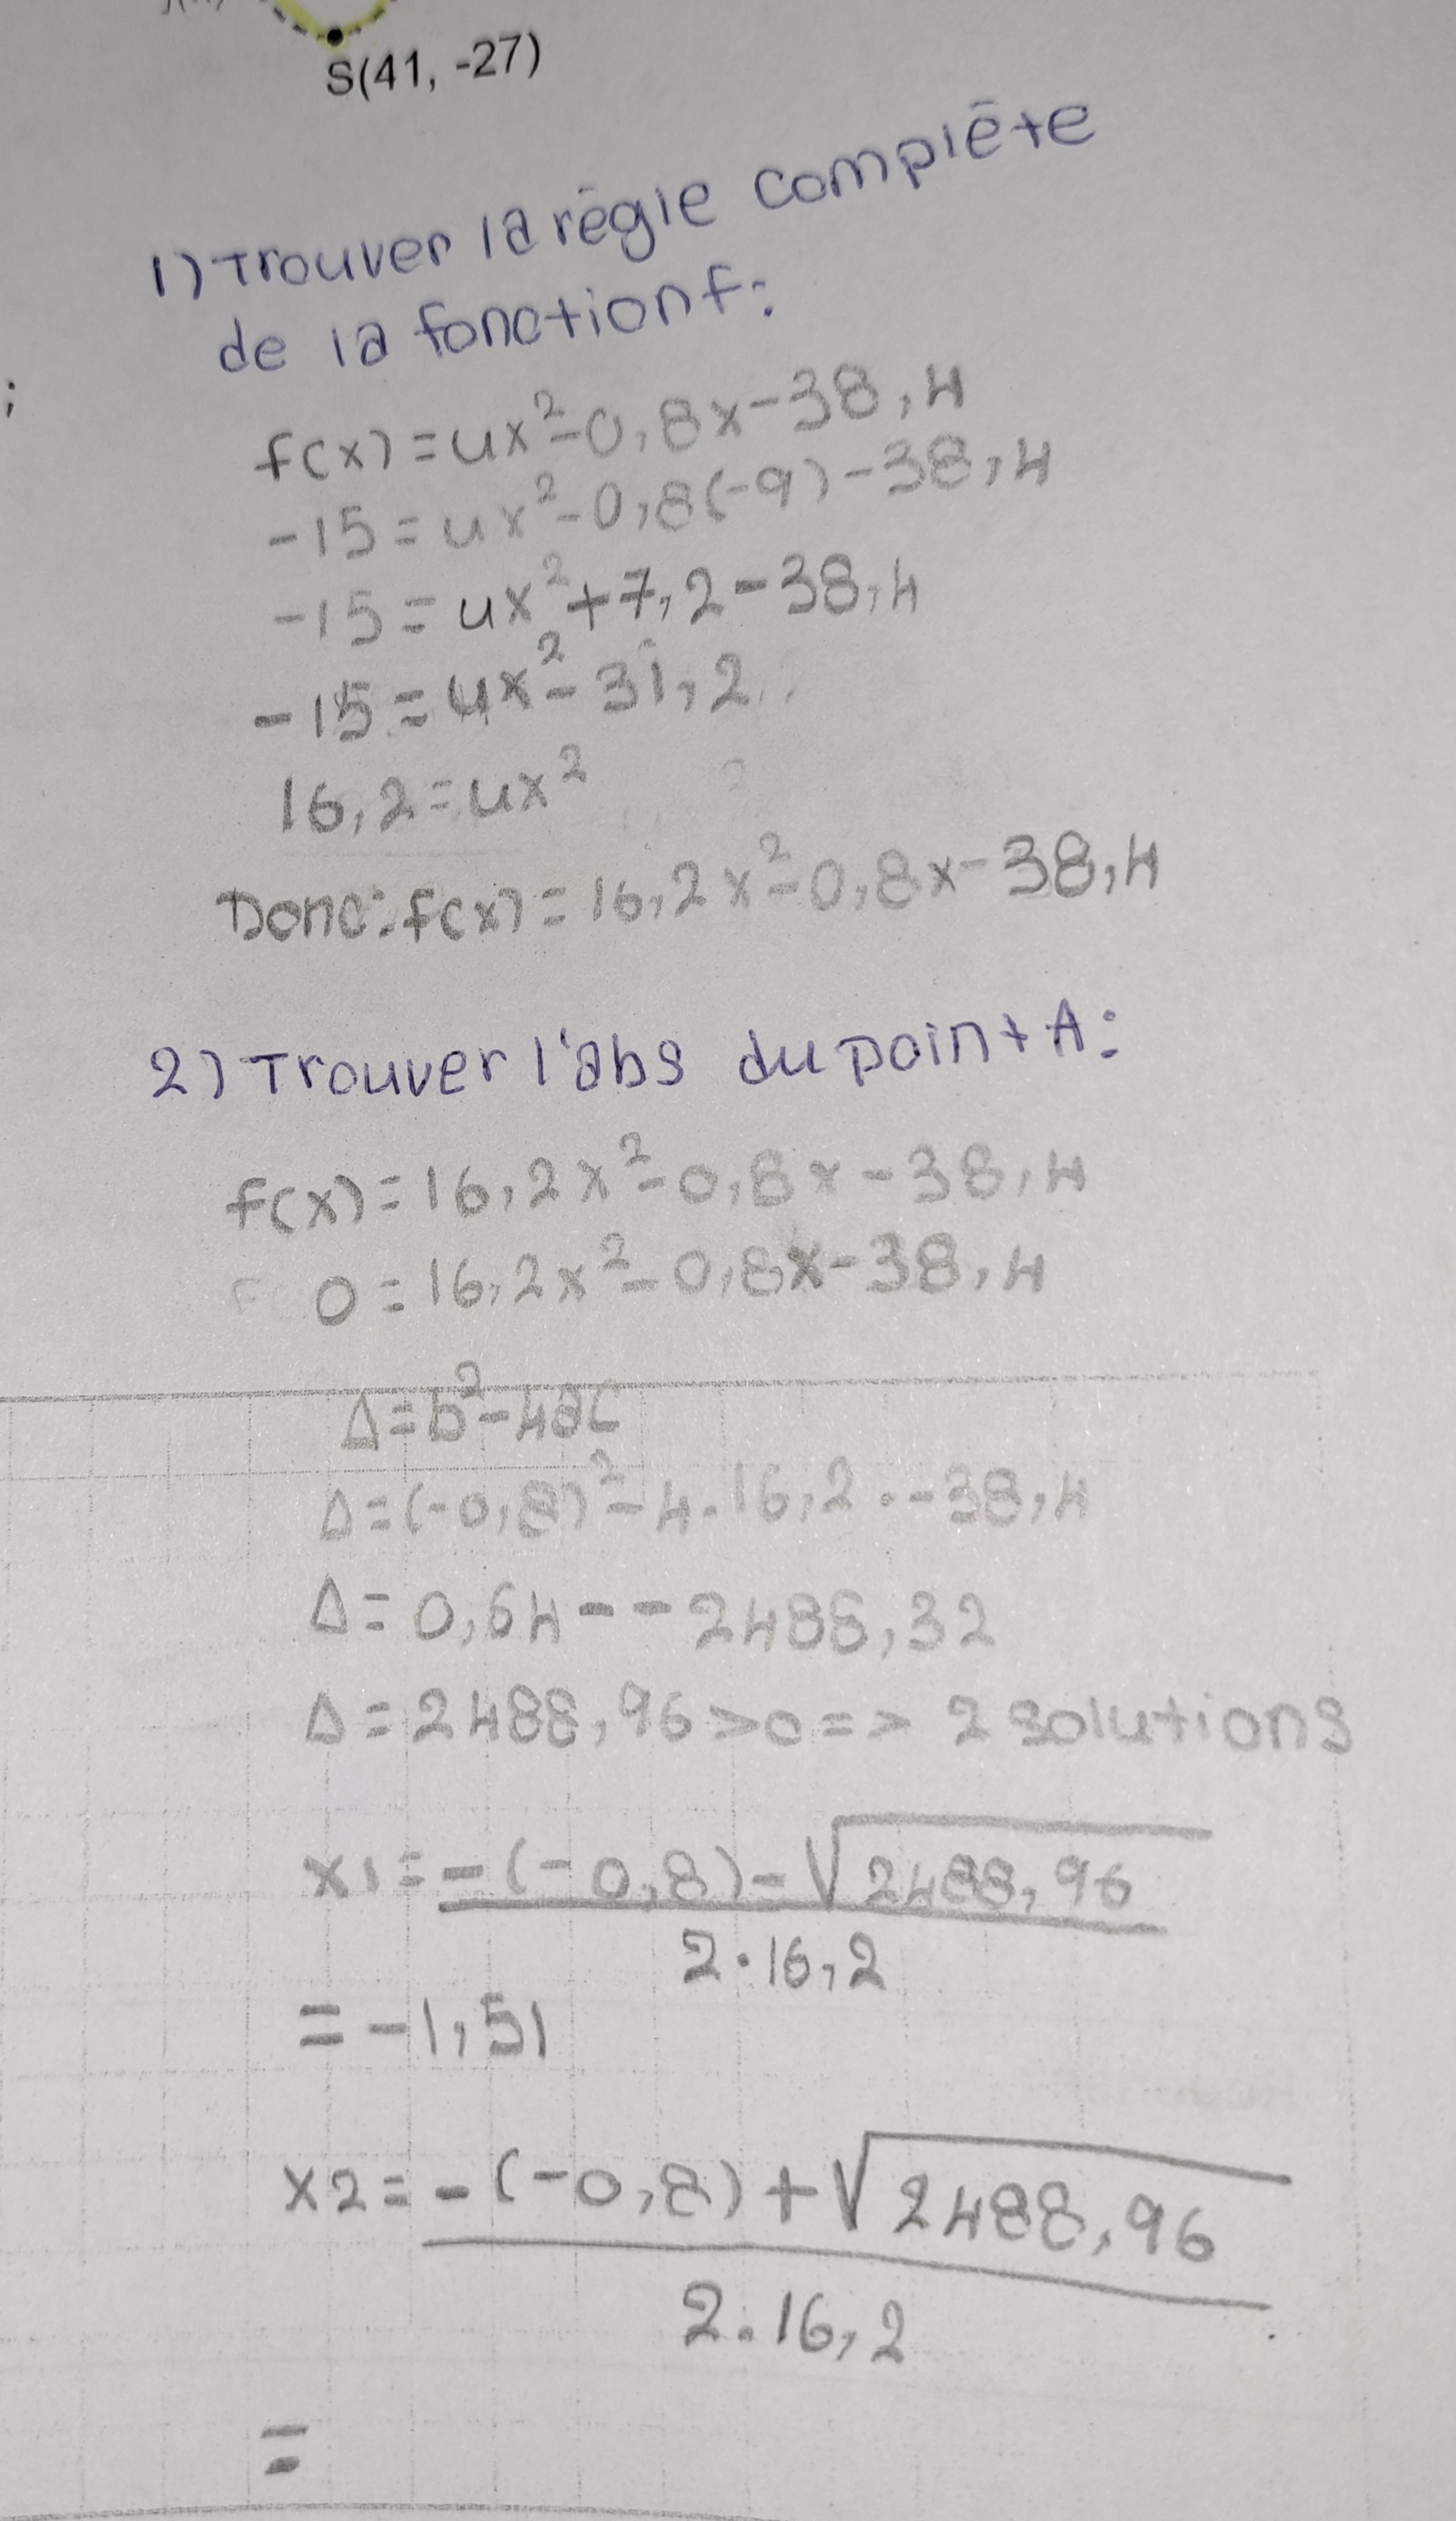 S(41, -27)
1) Trouver la règle complète
de la fonction f:
;
f(x) = ux²-0,8x-38,4
-15 = ux²-0,8(-9)-38,4
-15 = ux²+7,2-38,4
-15 = ux²-31,2
16,2 = ux²
Donc: f(x) = 16,2x²-0,8x-38,4
2) Trouver l'abs du point A:
f(x) = 16,2x²-0,8x-38,4
0 = 16,2x²-0,8x-38,4
Δ = b²-4ac
Δ = (-0,8)²-4.16,2.-38,4
Δ = 0,64--2488,32
Δ = 2488,96>0 => 2 solutions
x1 = -(-0,8)-√2488,96
2.16,2
= -1,51
x2 = -(-0,8)+√2488,96
2.16,2
=